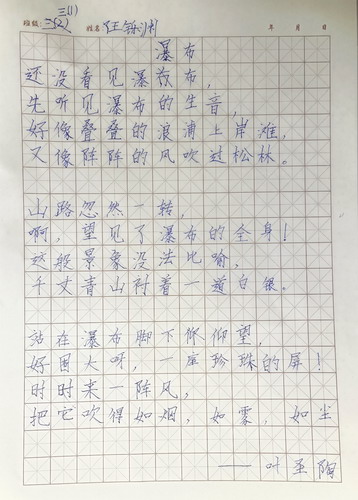 三(1)
班级：三(2) 姓名：汪铄 年 月 日
瀑布
还没看见瀑布，
先听见瀑布的生音，
好像叠叠的浪浦上岸滩，
又像阵阵的风吹过松林。
山路忽然一转，
啊，望见了瀑布的全身！
这般景象没法比喻，
千丈青山衬着一道白银。
站在瀑布脚下仰望，
好围大呀，一座珍珠的屏！
时时来一阵风，
把它吹得如烟，如雾，如尘
——叶圣陶